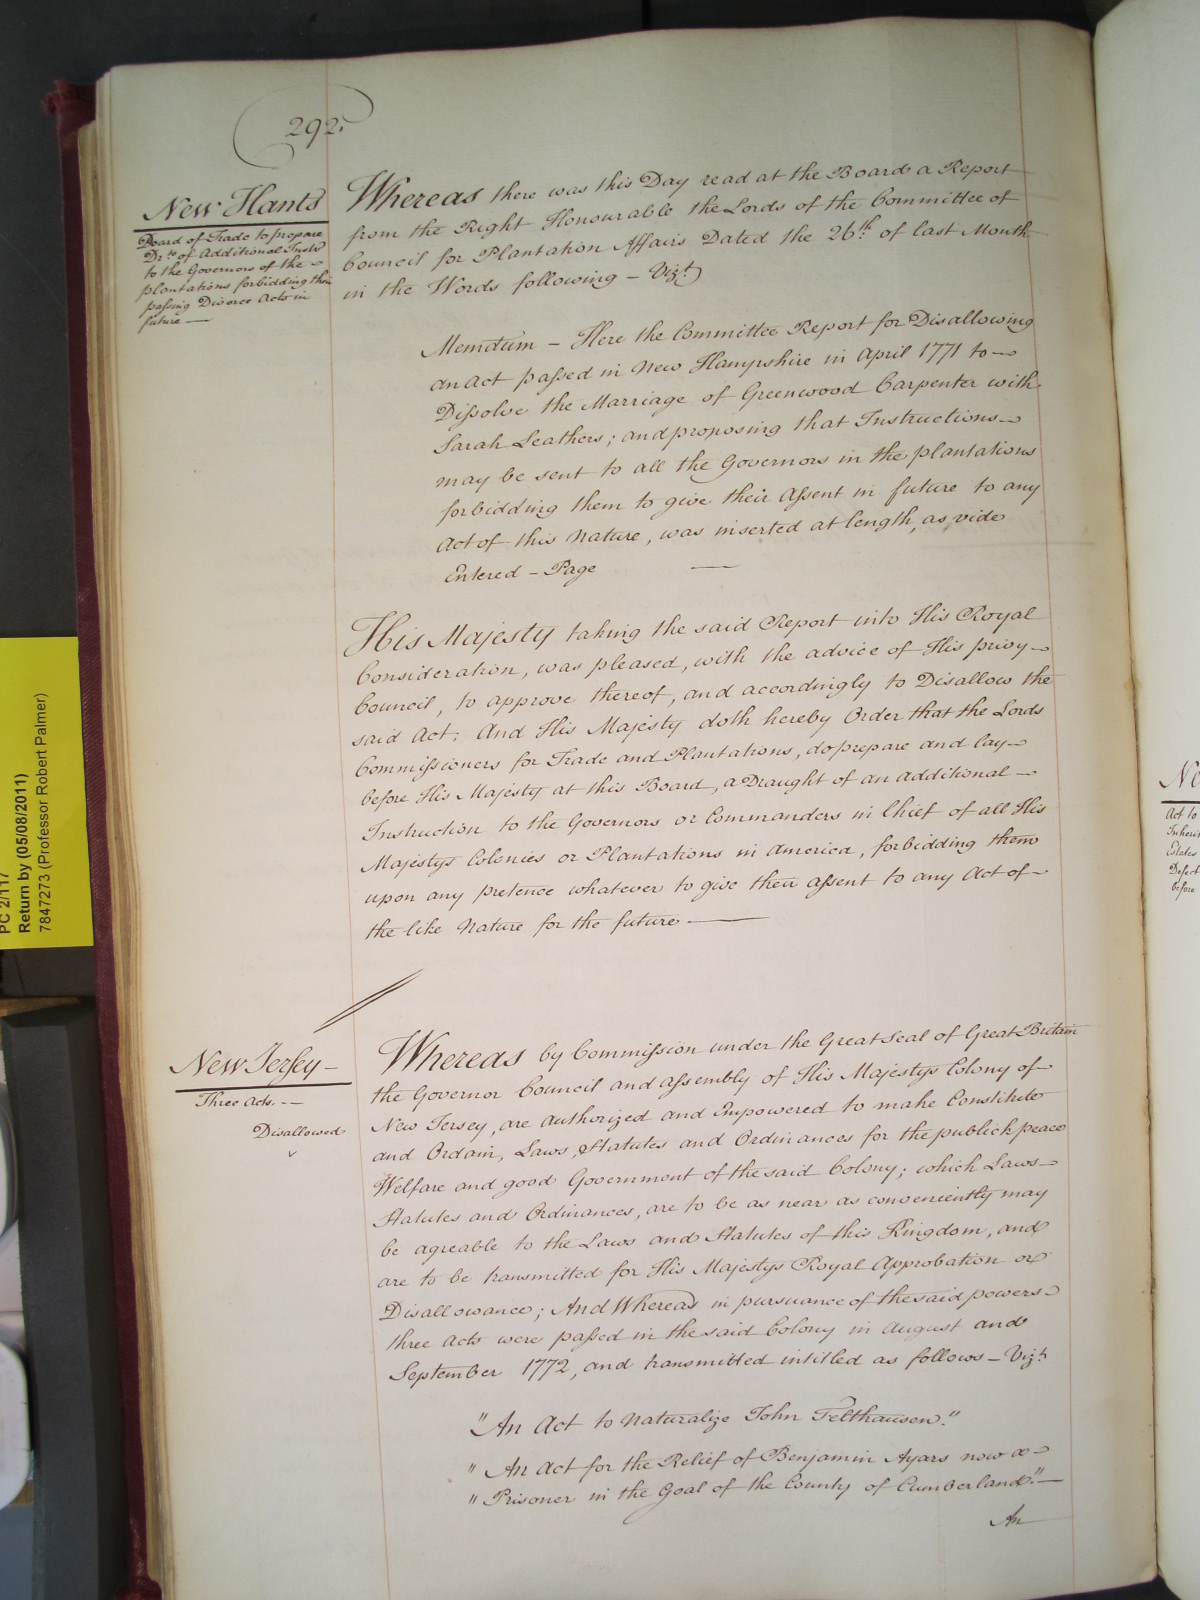 292.
New Hants
Board of Trade to prepare
Dr.ts of Additional Instr.s
to the Governors of the
plantations forbidding their
passing Divorce Acts in
future —
Whereas there was this Day read at the Board a Report
from the Right Honourable the Lords of the Committee of
Council for Plantation Affairs Dated the 26th of last Month
in the Words following – Vizt
Memdum – Here the Committee Report for Disallowing
an Act passed in New Hampshire in April 1771 to
Dissolve the Marriage of Greenwood Carpenter with
Sarah Leathers; and proposing that Instructions
may be sent to all the Governors in the plantations
forbidding them to give their Assent in future to any
Act of this Nature, was inserted at length, as vide
Entered – Page —
His Majesty taking the said Report into His Royal
Consideration, was pleased, with the advice of His privy
Council, to approve thereof, and accordingly to Disallow the
said Act: And His Majesty doth hereby Order that the Lords
Commissioners for Trade and Plantations, do prepare and lay
before His Majesty at this Board, a Draught of an additional
Instruction to the Governors or Commanders in Chief of all His
Majestys Colonies or Plantations in America, forbidding them
upon any pretence whatever to give their assent to any Act of
the like Nature for the future —
New Jersey –
Three Acts. –
Disallowed
Whereas by Commission under the Great Seal of Great Britain
the Governor Council and Assembly of His Majestys Colony of
New Jersey, are authorized and Impowered to make Constitute
and Ordain, Laws, Statutes and Ordinances for the publick peace
Welfare and good Government of the said Colony; which Laws
Statutes and Ordinances, are to be as near as conveniently may
be agreable to the Laws and Statutes of this Kingdom, and
are to be transmitted for His Majestys Royal Approbation or
Disallowance; And Whereas in pursuance of the said powers
three Acts were passed in the said Colony in August and
September 1772, and transmitted intitled as follows – Vizt.
"An Act to Naturalize John Felthausen."
"An Act for the Relief of Benjamin Ayars now a
"Prisoner in the Goal of the County of Cumberland." —
An
PC 2/117
Return by (05/08/2011)
7847273 (Professor Robert Palmer)
Ne
Act to
Inheri
Estates
Defect
before